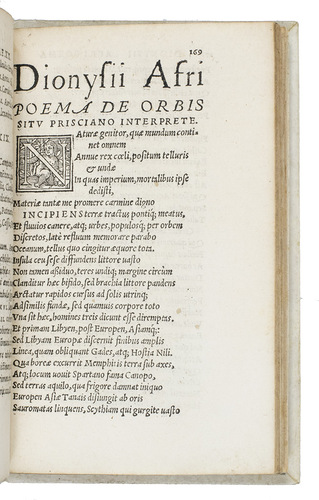 169
Dionysii Afri
POEMA DE ORBIS
SITV PRISCIANO INTERPRETE.
NAturæ genitor, quæ mundum conti-
net omnem
Annue rex cœli, positum telluris
& undæ
In quas imperium, mortalibus ipse
dedisti,
Materiæ tantæ me promere carmine digno
INCIPIENS terræ tractus pontiq; meatus,
Et fluuios canere, atq; urbes, populosq; per orbem
Discretos, latè refluum memorare parabo
Oceanum, tellus quo cingitur æquore tota.
Insula ceu sese diffundens littore uasto
Non tamen assiduo, teres undiq; margine circum
Clanditur hæc bifido, sed brachia littore pandens
Arctatur rapidos cursus ad solis utrinq;
Adsimilis fundæ, sed quamuis corpore toto
Vna sit hæc, homines treis dicunt esse diremptas.
Et primam Libyen, post Europen, Asiamq;:
Sed Libyam Europæ discernit finibus amplis
Linea, quam obliquant Gades, atq; Hostia Nili.
Qua boreæ excurrit Memphitis terra sub axes,
Atq; locum uouit Spartano fama Canopo,
Sed terras aquilo, qua frigore damnat iniquo
Europen Asiæ Tanais disiungit ab oris
Sauromatas linquens, Scythiam qui gurgite uasto